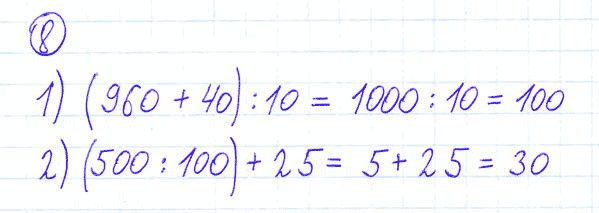 8
1) (960 + 40) : 10 = 1000 : 10 = 100
2) (500 : 100) + 25 = 5 + 25 = 30